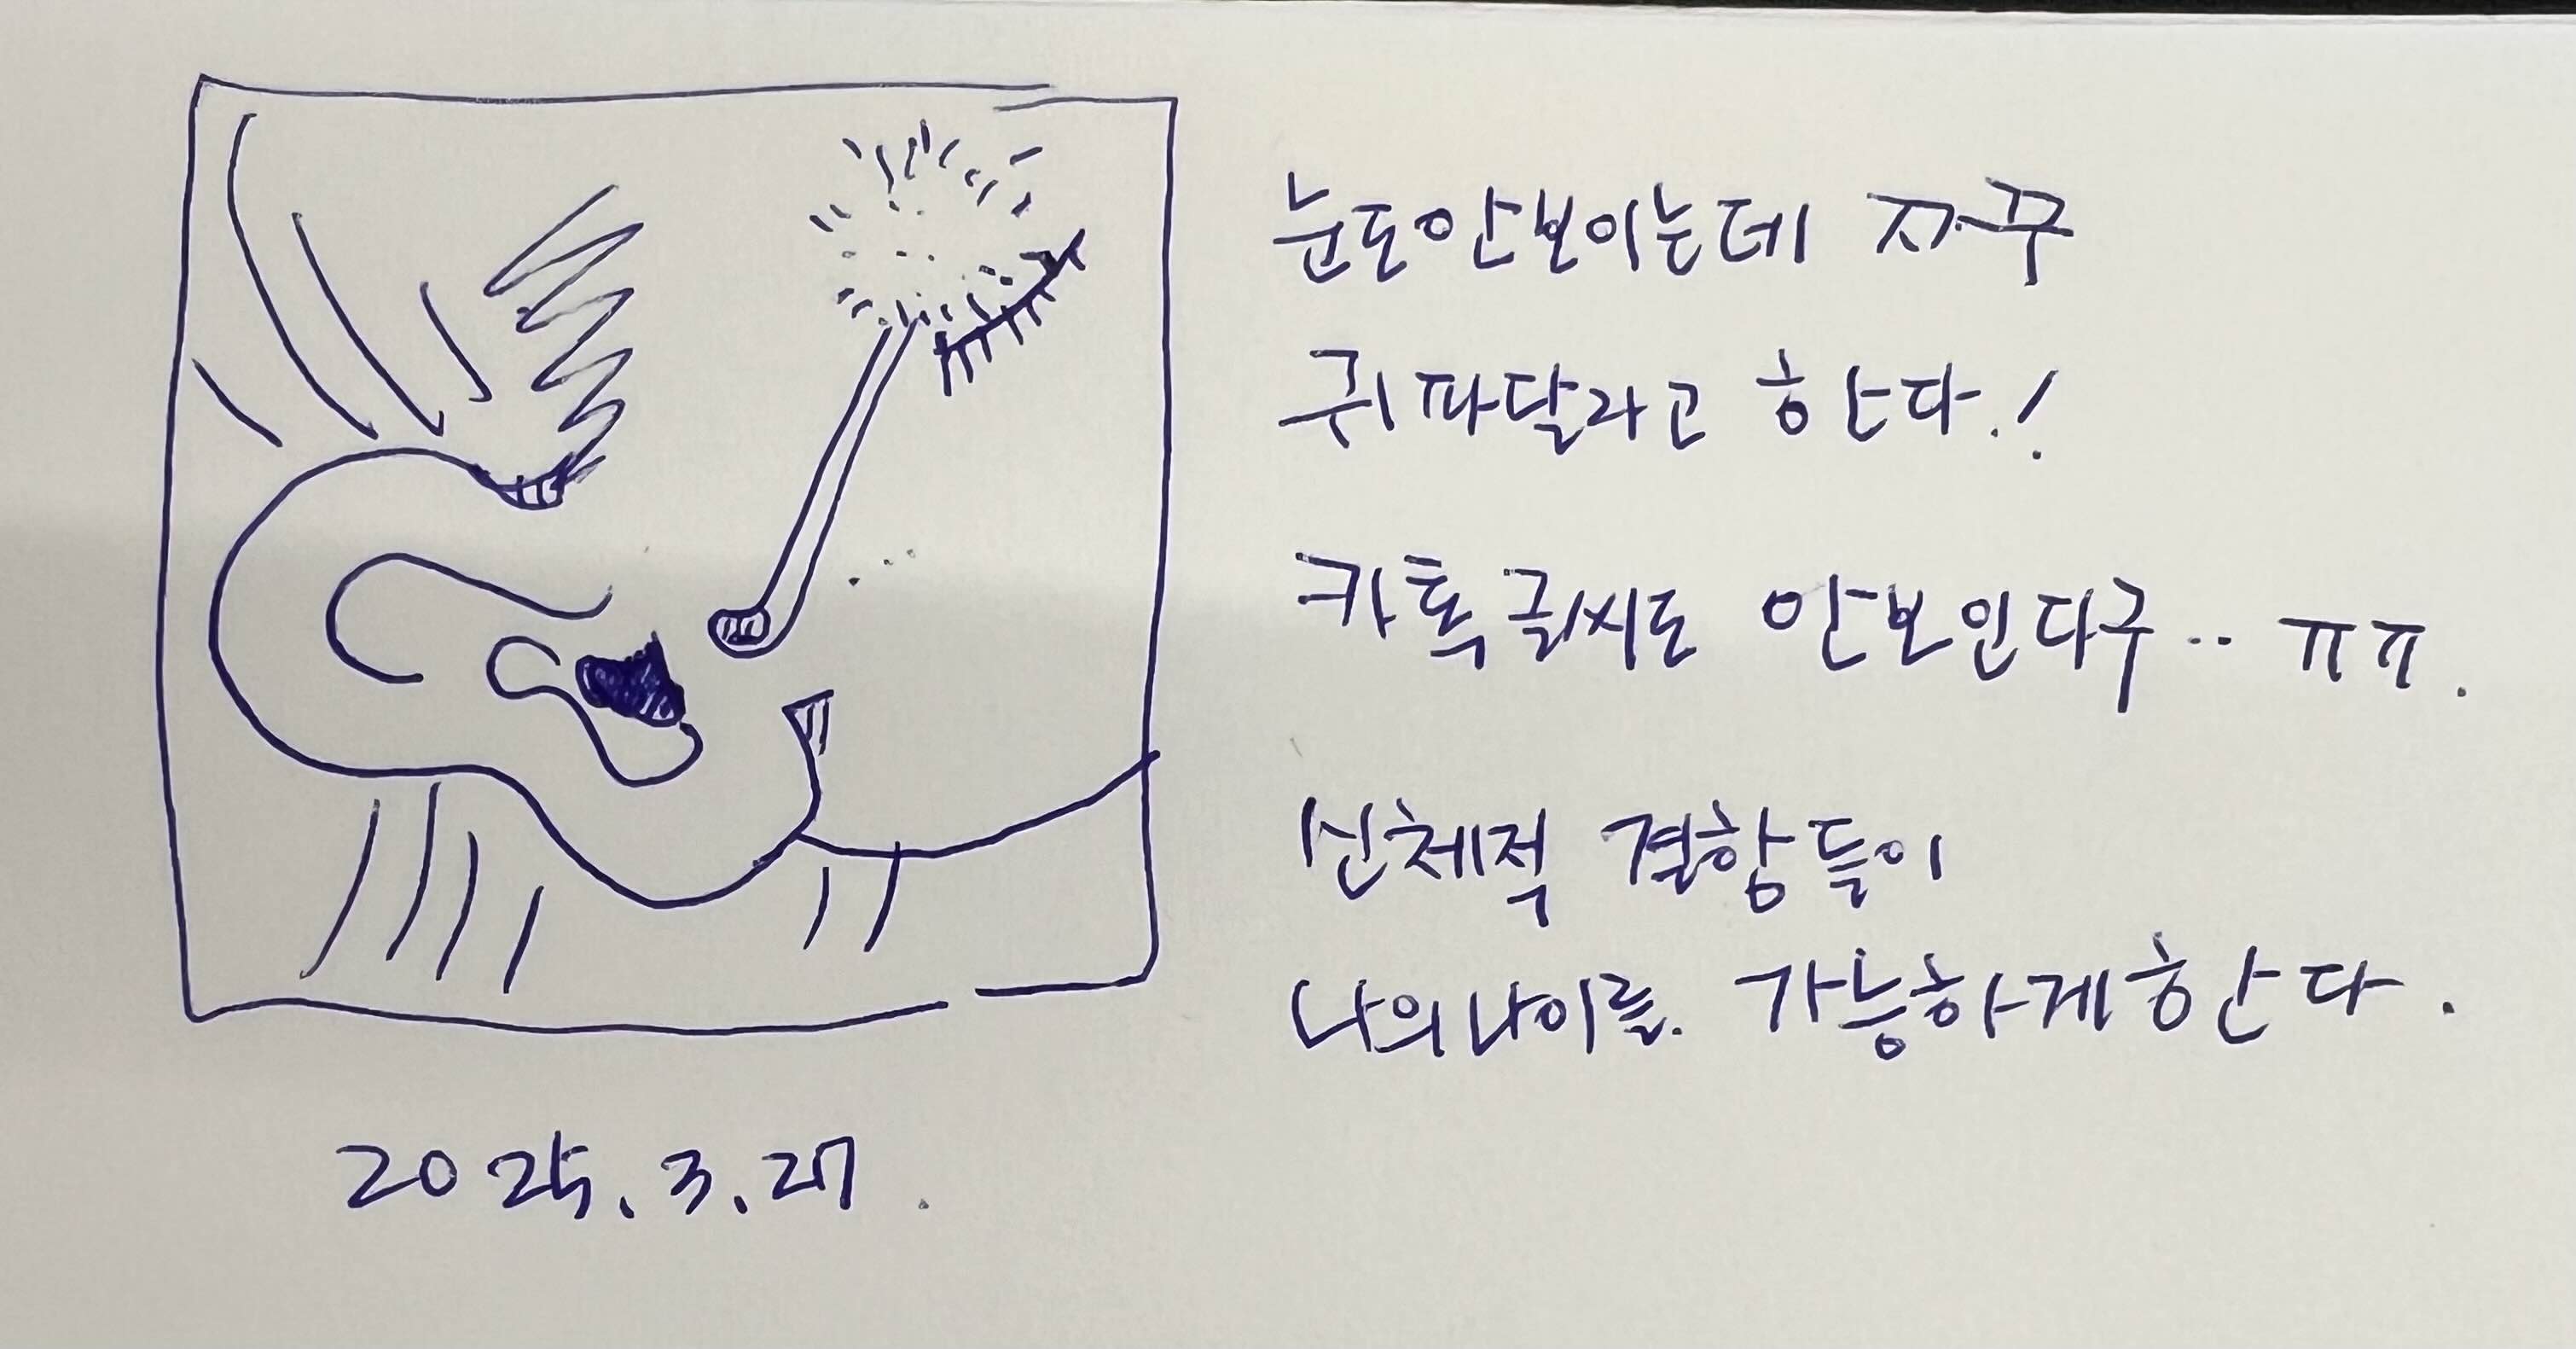 눈도안보이는데 자꾸
귀파달라고 한다.!
카톡글씨도 안보인다구.. ㅠㅠ.
신체적 결함들이
나의나이를. 가능하게한다.
2025.3.27.